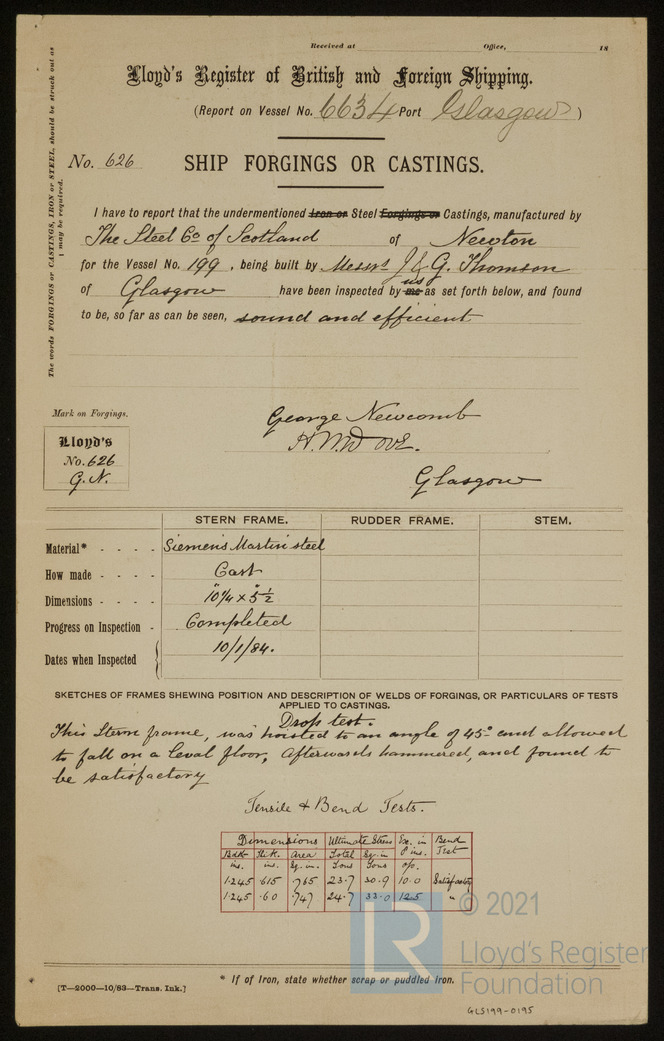 Received at Office, 18
Lloyd's Register of British and Foreign Shipping.
(Report on Vessel No. 6634 Port Glasgow)
No. 626 SHIP FORGINGS OR CASTINGS.
The words FORGINGS or CASTINGS, IRON or STEEL, should be struck out as
may be required.
I have to report that the undermentioned Iron or Steel Forgings or Castings, manufactured by
The Steel Co of Scotland of Newton
for the Vessel No. 199, being built by Messrs J & G. Thomson
of Glasgow have been inspected by me us as set forth below, and found
to be, so far as can be seen, sound and efficient
Mark on Forgings.
Lloyd's
No. 626
G.N.
George Newcomb
H.M.
Glasgow
STERN FRAME. RUDDER FRAME. STEM.
Material* - - - - Siemens Martin steel
How made - - - - Cast
Dimensions - - - - 10¼" x 5½"
Progress on Inspection - Completed
Dates when Inspected 10/1/84.
SKETCHES OF FRAMES SHEWING POSITION AND DESCRIPTION OF WELDS OF FORGINGS, OR PARTICULARS OF TESTS
APPLIED TO CASTINGS.
Drop test.
This Stern frame, was hoisted to an angle of 45° and allowed
to fall on a leval floor, Afterwards hammered, and found to
be satisfactory
Tensile & Bend Tests.
Dimensions Ultimate Stress Ex. in Bend
Bdth Thk. Area Total Sq. in 8 ins. Test
ins. ins. Sq. in. Tons Tons o/o.
1.245 .615 .765 23.7 30.9 10.0 Satisfactory
1.245 .60 .747 24.7 33.0 12.5 "
* If of Iron, state whether scrap or puddled iron.
[T—2000—10/83—Trans. Ink.]
LR
© 2021
Lloyd's Register
Foundation
GLS199-0195